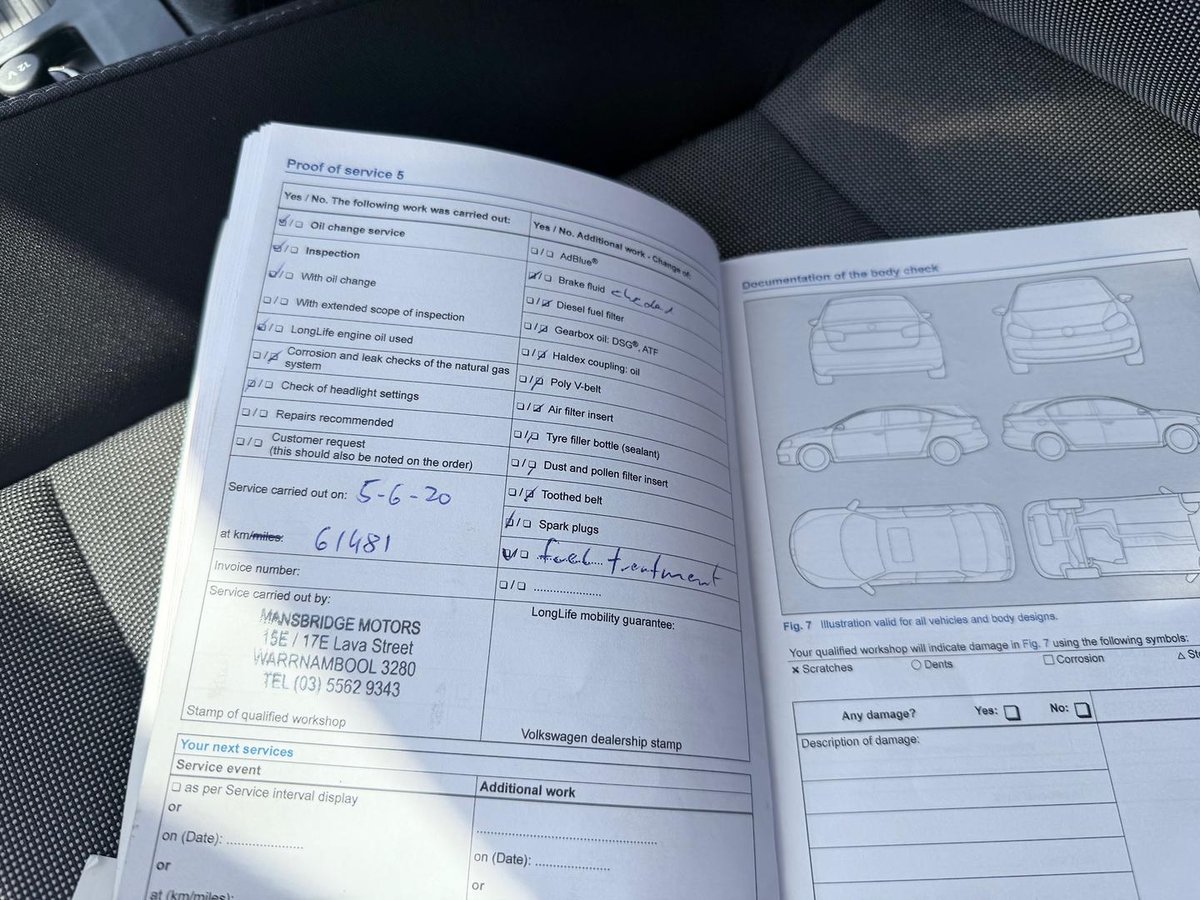 12 V
Proof of service 5
Yes / No. The following work was carried out:
☑/☐ Oil change service
☑/☐ Inspection
☑/☐ With oil change
☐/☐ With extended scope of inspection
☑/☐ LongLife engine oil used
☐/☑ Corrosion and leak checks of the natural gas
system
☑/☐ Check of headlight settings
☐/☐ Repairs recommended
☐/☐ Customer request
(this should also be noted on the order)
Service carried out on: 5-6-20
at km/miles: 61481
Invoice number:
Service carried out by:
MANSBRIDGE MOTORS
15E / 17E Lava Street
WARRNAMBOOL 3280
TEL (03) 5562 9343
Stamp of qualified workshop
Yes / No. Additional work - Change of:
☐/☐ AdBlue®
☑/☐ Brake fluid
☐/☑ Diesel fuel filter
☐/☑ Gearbox oil: DSG®, ATF
☐/☑ Haldex coupling: oil
☐/☑ Poly V-belt
☐/☑ Air filter insert
☐/☑ Tyre filler bottle (sealant)
☐/☑ Dust and pollen filter insert
☐/☑ Toothed belt
☑/☐ Spark plugs
☑/☐ fuel treatment
☐/☐ ....................
LongLife mobility guarantee:
Volkswagen dealership stamp
Your next services
Service event
☐ as per Service interval display
or
on (Date): ....................
or
at (km/miles):
Additional work
on (Date): ....................
or
Documentation of the body check
Fig. 7 Illustration valid for all vehicles and body designs.
Your qualified workshop will indicate damage in Fig. 7 using the following symbols:
× Scratches ○ Dents □ Corrosion △
Any damage? Yes: ☐ No: ☐
Description of damage: